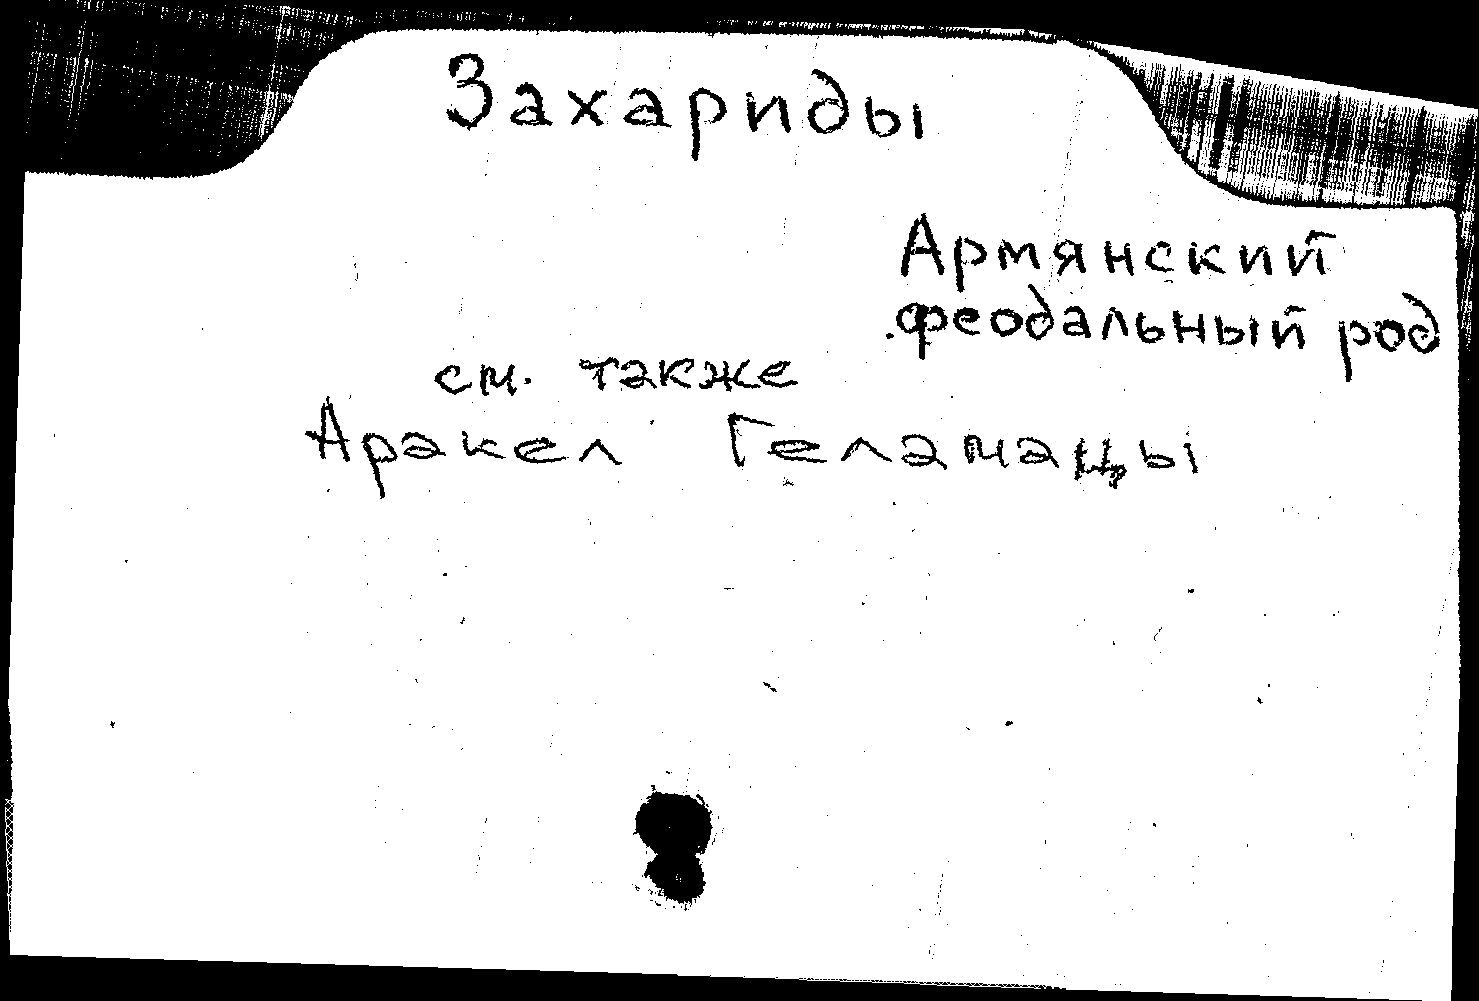 Захариды
Армянский
феодальный род
см. также
Аракел Геламацы